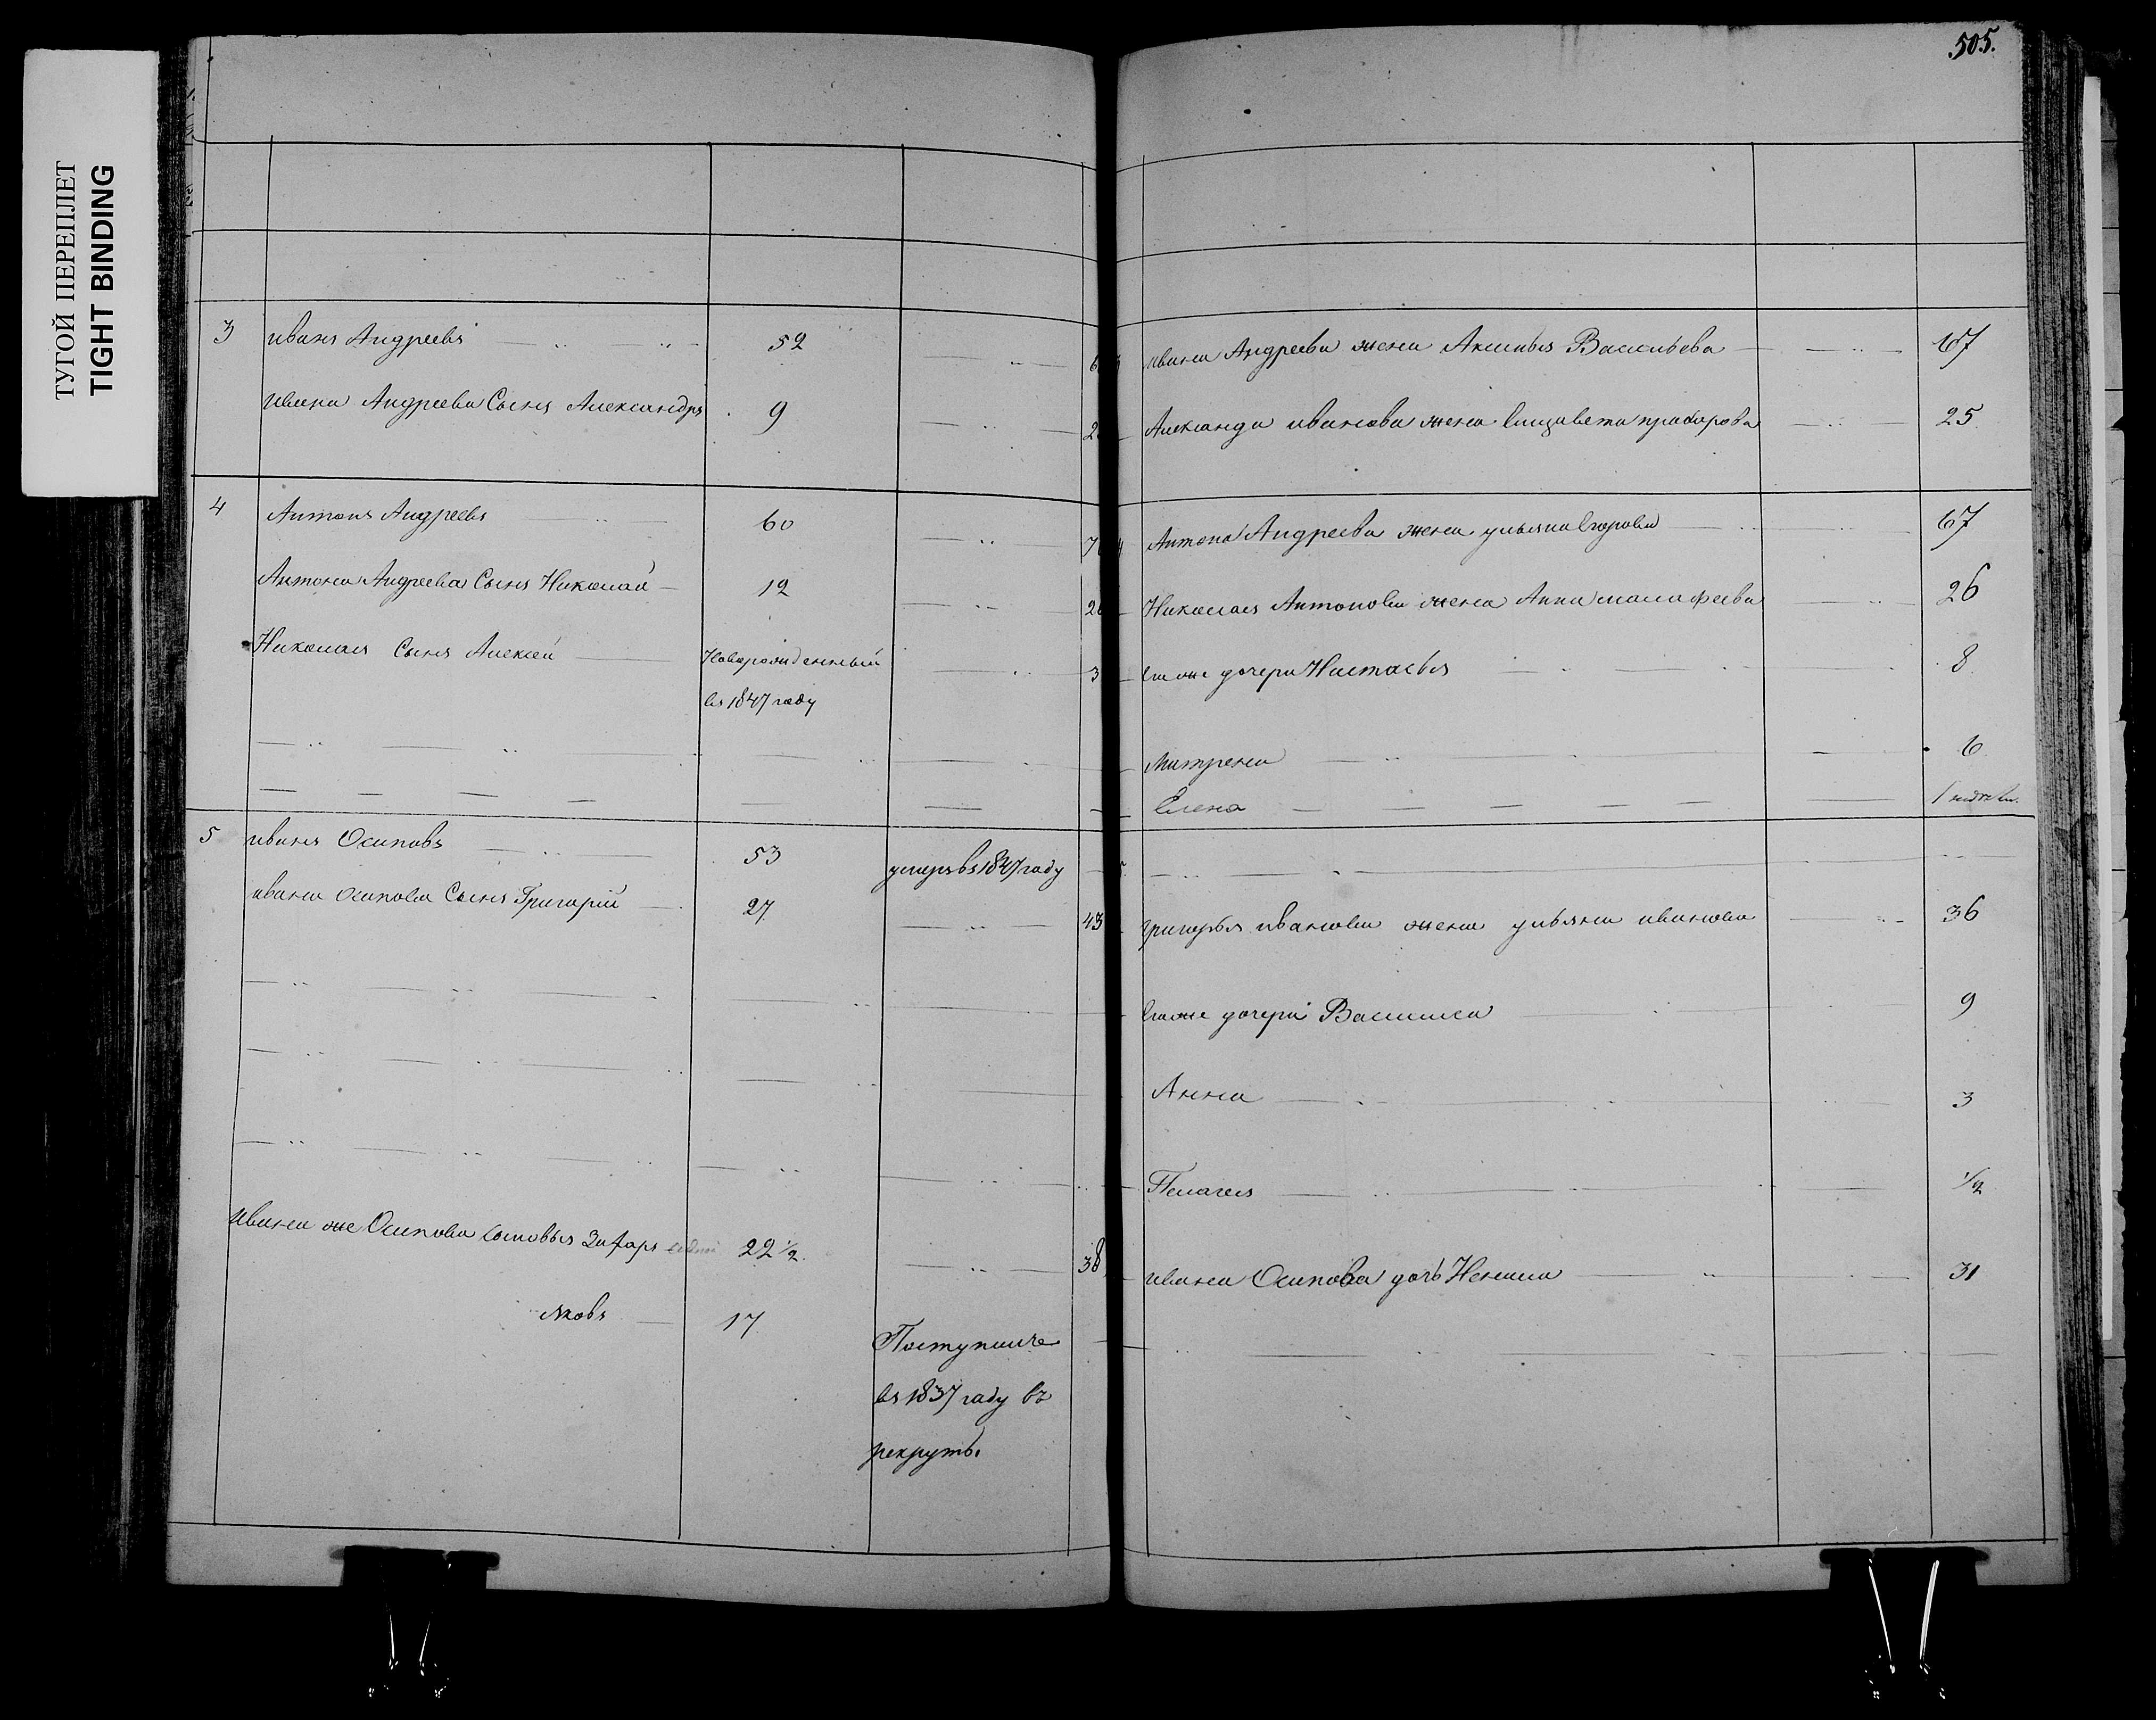 ТУГОЙ ПЕРЕПЛЕТ
TIGHT BINDING
505.
3 иванъ Андреевъ 52
Ивана Андреева Сынъ Александръ 9
4 Антонъ Андреевъ 60
Антона Андреева Сынъ Николай 12
Николая Сынъ Алексей Новорожденный 3
въ 1847 году
5 иванъ Осиповъ 53 умеръ въ 1847 году
ивана осипова Сынъ Григорiй 27 43
Ивана же Осипова сыновья 22 ½. 38
Яковъ 17 Поступилъ
въ 1837 году въ
рекруты.
ивана Андреева жена Аксинья Васильева 67
Александа иванова жена Елизавета 25
Антона Андреева жена ульяна Егорова 67
Николая Антонова жена Анна малафеева 26
дочери Настасья 8
Матрена 6
Елена
григорья иванова жена ульяна иванова 36
дочери Василиса 9
Анна 3
Пелагея ½
ивана Осипова дочь Ненила 31